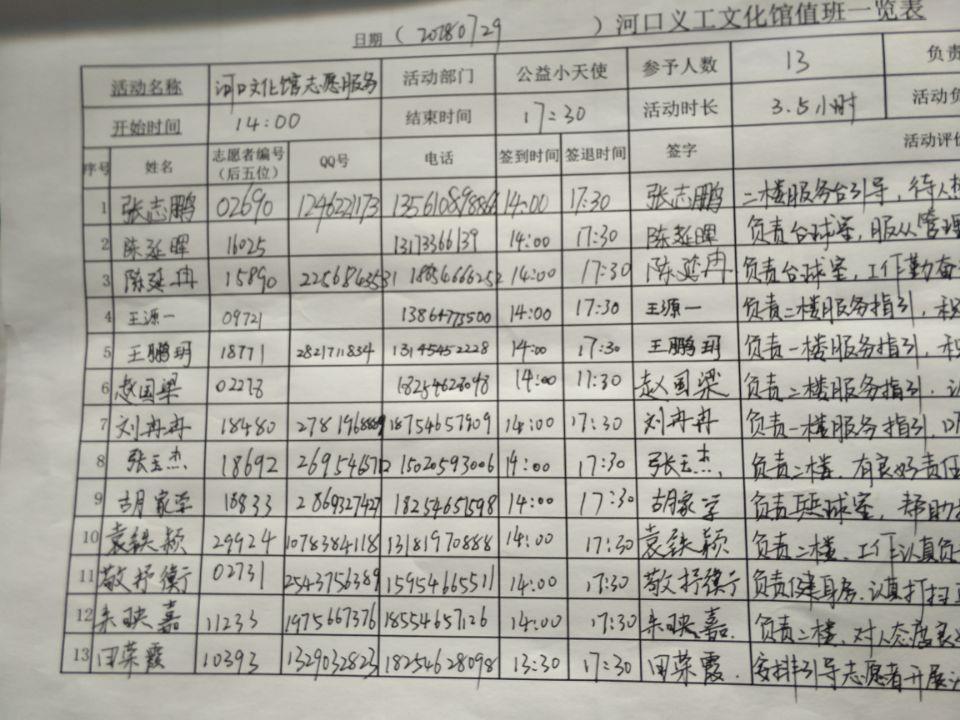 日期（20180729）河口义工文化馆值班一览表
活动名称 河口文化馆志愿服务 活动部门 公益小天使 参予人数 13 负责
开始时间 14:00 结束时间 17:30 活动时长 3.5小时 活动负
序号 姓名 志愿者编号（后五位） QQ号 电话 签到时间 签退时间 签字 活动评价
1 张志鹏 02690 124622173 14:00 17:30 张志鹏 二楼服务台引导，待人
2 陈延晖 16025 13173366139 14:00 17:30 陈延晖 负责台球室，服从管理
3 陈延冉 15890 14:00 17:30 陈延冉 负责台球室，工作勤奋
4 王源一 09721 13864773500 14:00 17:30 王源一 负责二楼服务指引，积
5 王鹏玥 18771 2821711834 13145452228 14:00 17:30 王鹏玥 负责一楼服务指引，积
6 赵国梁 02278 18254628098 14:00 17:30 赵国梁 负责二楼服务指引，认
7 刘冉冉 18480 18754657909 14:00 17:30 刘冉冉 负责一楼服务指引，
8 张玉杰 18692 15020593006 14:00 17:30 张玉杰 负责二楼，有良好责任
9 胡家学 18833 2869327427 18254651598 14:00 17:30 胡家学 负责乒乓球室，帮助
10 袁铁颖 29924 1078384118 13181970888 14:00 17:30 袁铁颖 负责二楼，工作认真负
11 敬抒衡 02731 2543756389 15954665511 14:00 17:30 敬抒衡 负责健身房，认真打扫
12 朱映嘉 11233 1975667376 18554657126 14:00 17:30 朱映嘉 负责二楼，对人态度良
13 田荣霞 10393 1329032823 18254628098 13:30 17:30 田荣霞 安排引导志愿者开展